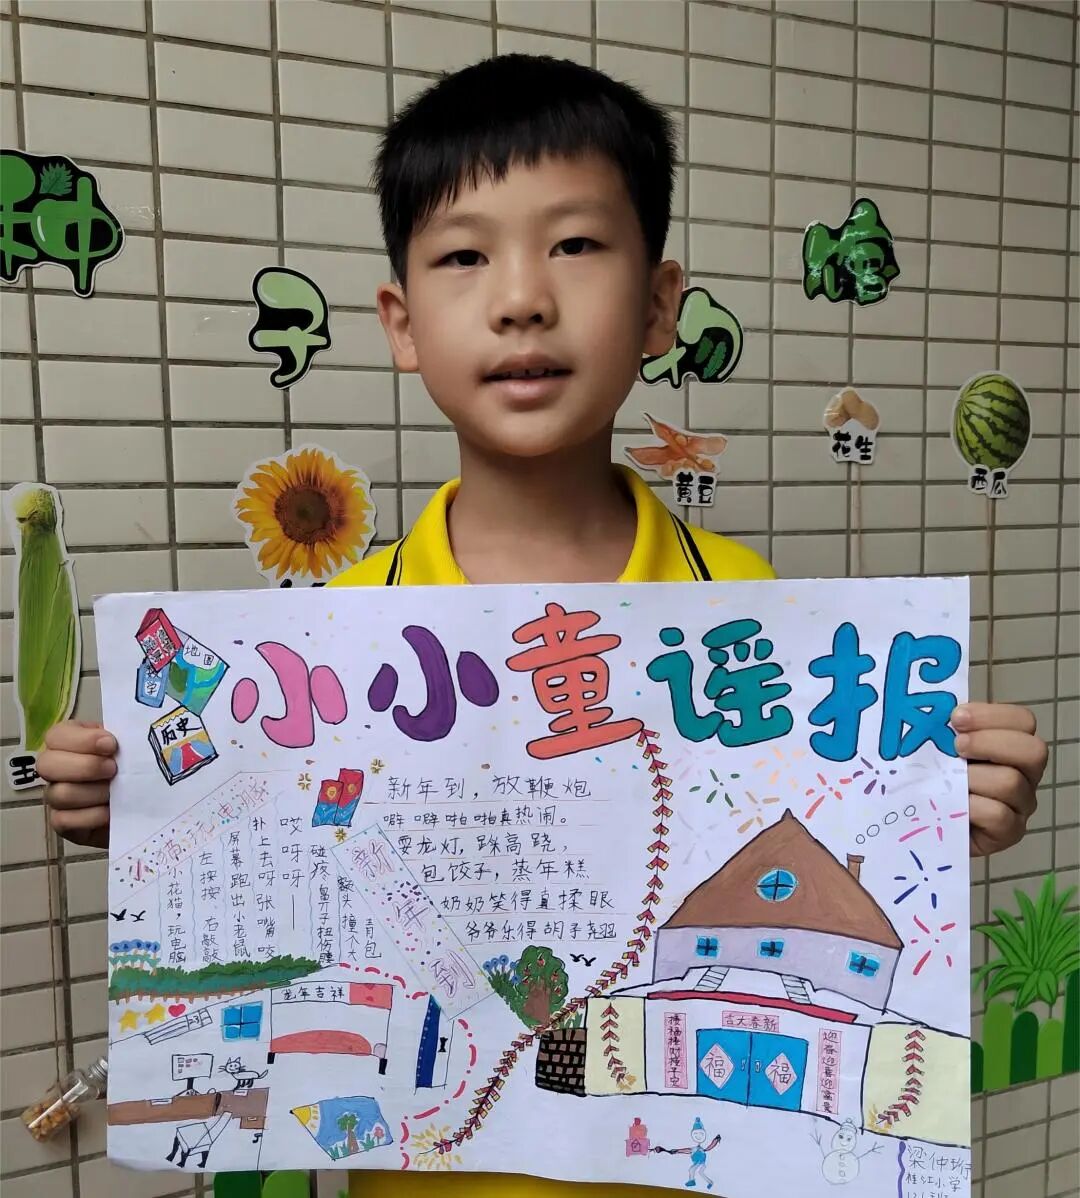 种
子
物
馆
花生
黄豆
西瓜
地图
数学
历史
小小童谣报
小猫玩电脑
小花猫，玩电脑
左按按，右敲敲
屏幕跑出小老鼠
扑上去呀张嘴咬
哎呀呀——
碰疼鼻子扭伤腰
额头撞个大
青包
新年到
新年到，放鞭炮
噼噼啪啪真热闹。
耍龙灯，踩高跷，
包饺子，蒸年糕
奶奶笑得真揉眼
爷爷乐得胡子翘
龙年吉祥
吉大春新
福
福
迎春迎喜迎富贵
梁仲珩
桂江小学